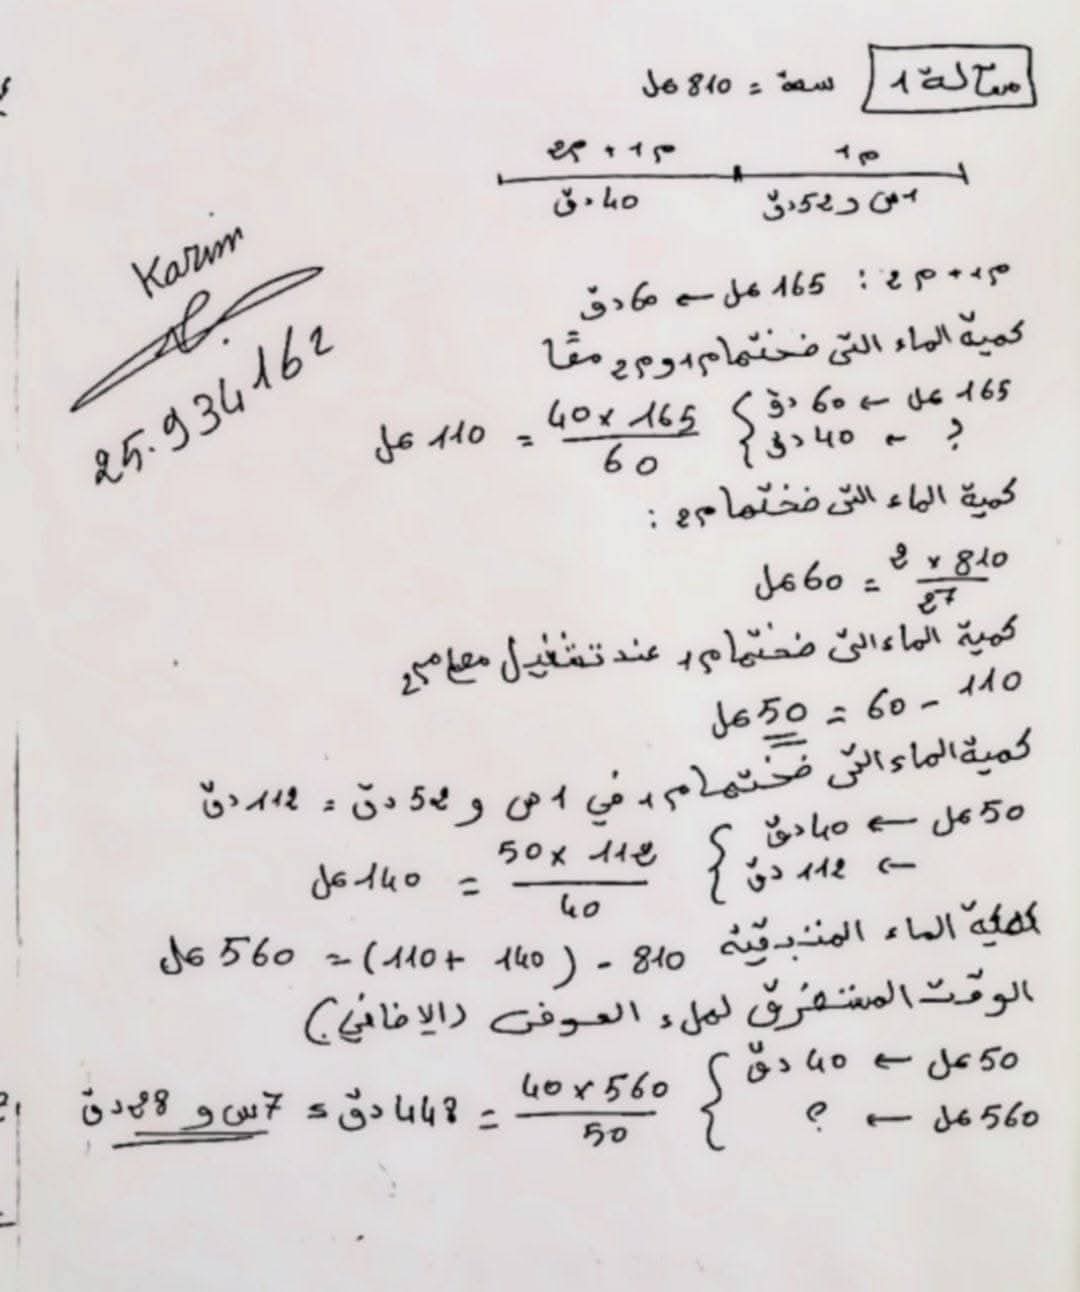 مسألة 1 سعة = 810 هل
م1 + م2 م1
40 دق 1س و 52 دق
م1 + م2 : 165 هل ← 60 دق
كمية الماء التي ضختها م1 و م2 معًا
165 هل ← 60 دق
? ← 40 دق
40 × 165 / 60 = 110 هل
كمية الماء التي ضختها م2 :
810 × 2 / 27 = 60 هل
كمية الماء التي ضختها م1 عند تشغيل مع م2
110 - 60 = 50 هل
كمية الماء التي ضختها م1 في 1 س و 52 دق = 112 دق
50 هل ← 40 دق
← 112 دق
50 × 112 / 40 = 140 هل
كمية الماء المتبقية 810 - (110 + 140) = 560 هل
الوقت المستغرق لملء الحوض (الإضافي)
50 هل ← 40 دق
560 هل ← ?
40 × 560 / 50 = 448 دق = 7س و 28 دق
Karim
25.934162